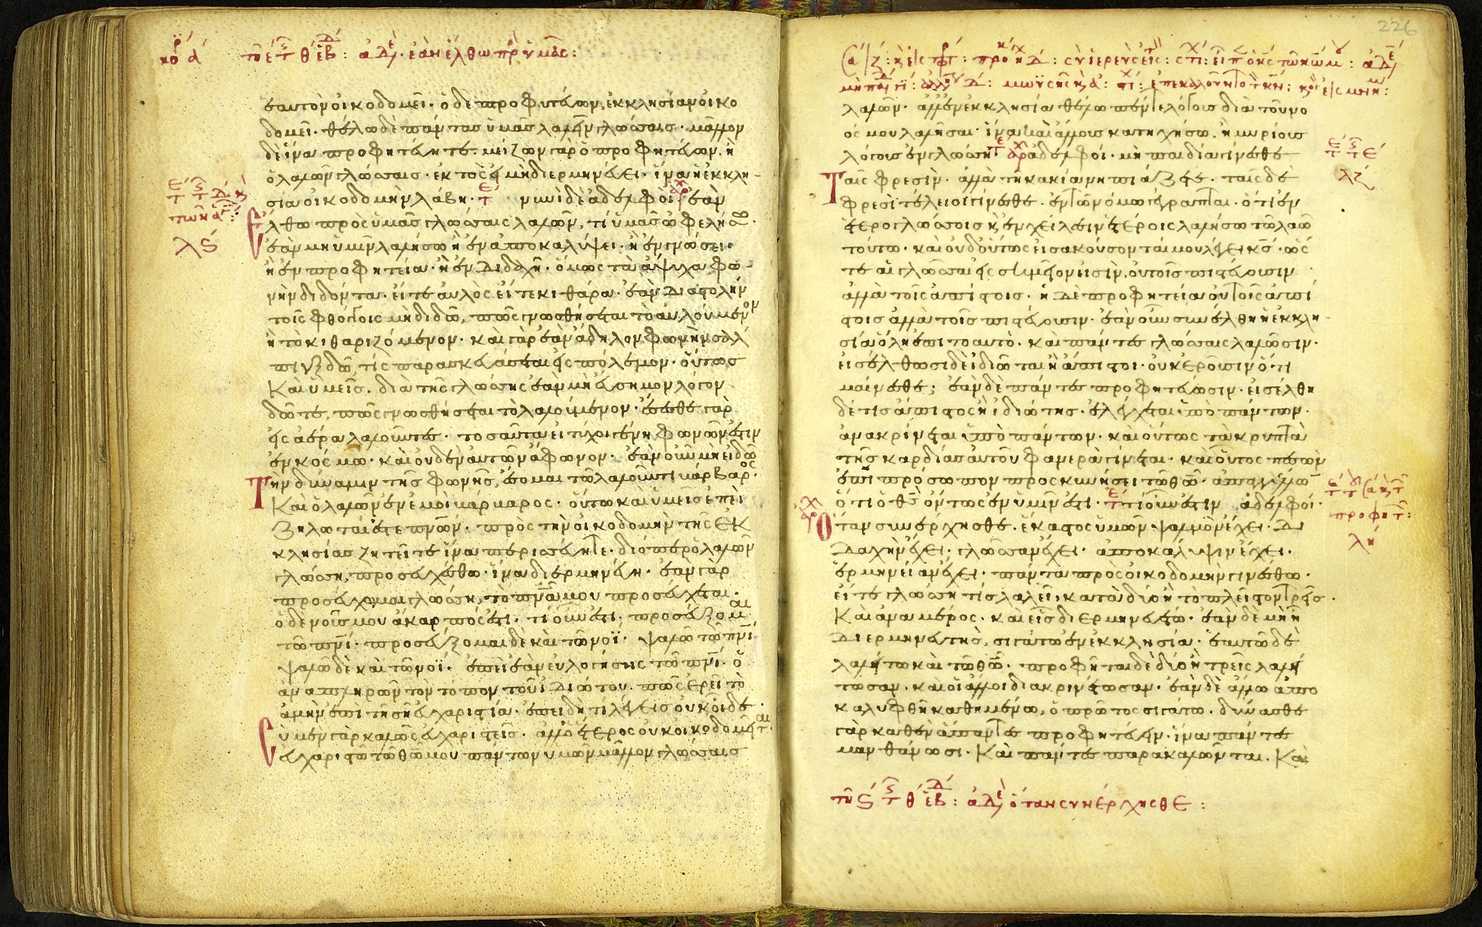 κορ α τῇ ε τ θ ἑβ : ἀδε· ἐὰν ἔλθω πρ ὑμᾶς :
ἑαυτὸν οἰκοδομεῖ· ὁ δὲ προφητεύων, ἐκκλησίαν οἰκο
δομεῖ· θέλω δὲ πάντας ὑμᾶς λαλεῖν γλώσσαις· μᾶλλον
δὲ ἵνα προφητεύητε· μείζων γὰρ ὁ προφητεύων, ἢ
ὁ λαλῶν γλώσσαις· ἐκτὸς εἰ μὴ διερμηνεύει· ἵνα ἡ ἐκκλη
σία οἰκοδομὴν λάβῃ· τε νυνὶ δὲ ἀδελφοί ἐὰν
ἔλθω πρὸς ὑμᾶς γλώσσαις λαλῶν, τί ὑμᾶς ὠφελήσω·
ἐὰν μὴ ὑμῖν λαλήσω ἢ ἐν ἀποκαλύψει· ἢ ἐν γνώσει·
ἢ ἐν προφητείᾳ· ἢ ἐν διδαχῇ· ὅμως τὰ ἄψυχα φω
νὴν διδόντα· εἴτε αὐλὸς εἴτε κιθάρα· ἐὰν διαστολὴν
τοῖς φθόγγοις μὴ διδῶ, πῶς γνωσθήσεται τὸ αὐλούμενον
ἢ τὸ κιθαριζόμενον· καὶ γὰρ ἐὰν ἄδηλον φωνὴν σάλ
πιγξ δῶ, τίς παρασκευάσεται εἰς πόλεμον· οὕτως
καὶ ὑμεῖς, διὰ τῆς γλώσσης ἐὰν μὴ εὔσημον λόγον
δῶτε, πῶς γνωσθήσεται τὸ λαλούμενον· ἔσεσθε γὰρ
εἰς ἀέρα λαλοῦντες· τοσαῦτα εἰ τύχοι γένη φωνῶν ἐστιν
ἐν κόσμω· καὶ οὐδὲν αὐτῶν ἄφωνον· ἐὰν οὖν μὴ εἰδῶ
τὴν δύναμιν τῆς φωνῆς, ἔσομαι τῶ λαλοῦντι βάρβαρος·
καὶ ὁ λαλῶν ἐν ἐμοὶ βάρβαρος· οὕτω καὶ ὑμεῖς ἐπεὶ
ζηλωταί ἐστε πνῶν· πρὸς τὴν οἰκοδομὴν τῆς ἐκ
κλησίας ζητεῖτε ἵνα περισσεύητε· διόπερ ὁ λαλῶν
γλώσση, προσευχέσθω· ἵνα διερμηνεύη· ἐὰν γὰρ
προσεύχωμαι γλώσση, τὸ πνα μου προσεύχεται·
ὁ δὲ νοῦς μου ἄκαρπός ἐστι· τί οὖν ἐστι· προσεύξομαι
τῶ πνι· προσεύξομαι δὲ καὶ τῶ νοΐ· ψαλῶ τῶ πνι
ψαλῶ δὲ καὶ τῶ νοΐ· ἐπεὶ ἐὰν εὐλογήσης τῶ πνι· ὁ
ἀναπληρῶν τὸν τόπον τοῦ ἰδιώτου· πῶς ἐρεῖ τὸ
ἀμὴν ἐπὶ τῇ σῇ εὐχαριστία· ἐπειδὴ τί λέγεις οὐκ οἶδε·
σὺ μὲν γὰρ καλῶς εὐχαριστεῖς· ἀλλ' ὁ ἕτερος οὐκ οἰκοδομεῖται·
εὐχαριστῶ τῶ θῶ μου πάντων ὑμῶν μᾶλλον γλώσσαις
λϛ
λαλῶν· ἀλλ' ἐν ἐκκλησία θέλω πέντε λόγους διὰ τοῦ νο
ός μου λαλῆσαι· ἵνα καὶ ἄλλους κατηχήσω, ἢ μυρίους
λόγους ἐν γλώσση· τε ἀδελφοί· μὴ παιδία γίνεσθε
ταῖς φρεσίν· ἀλλὰ τῇ κακία νηπιάζετε· ταῖς δὲ
φρεσὶ τέλειοι γίνεσθε· ἐν τῶ νόμω γέγραπται· ὅτι ἐν
ἑτερογλώσσοις ἢ ἐν χείλεσιν ἑτέροις λαλήσω τῶ λαῶ
τούτω· καὶ οὐδ' οὕτως εἰσακούσονταί μου λέγει κς· ὥς
τε αἱ γλῶσσαι εἰς σημεῖόν εἰσιν, οὐ τοῖς πιστεύουσιν
ἀλλὰ τοῖς ἀπίστοις· ἡ δὲ προφητεία οὐ τοῖς ἀπί
στοις ἀλλὰ τοῖς πιστεύουσιν· ἐὰν οὖν συνέλθη ἡ ἐκκλη
σία ὅλη ἐπὶ τὸ αὐτό· καὶ πάντες γλώσσαις λαλῶσιν·
εἰσέλθωσι δὲ ἰδιῶται ἢ ἄπιστοι· οὐκ ἐροῦσιν ὅτι
μαίνεσθε; ἐὰν δὲ πάντες προφητεύωσιν· εἰσέλθη
δέ τις ἄπιστος ἢ ἰδιώτης· ἐλέγχεται ὑπὸ πάντων·
ἀνακρίνεται ὑπὸ πάντων· καὶ οὕτως τὰ κρυπτὰ
τῆς καρδίας αὐτοῦ φανερὰ γίνεται· καὶ οὕτως πεσὼν
ἐπὶ πρόσωπον προσκυνήσει τῶ θῶ· ἀπαγγέλλων
ὅτι ὁ θς ὄντως ἐν ὑμῖν ἐστι· τε τί οὖν ἐστιν ἀδελφοί·
ὅταν συνέρχησθε· ἕκαστος ὑμῶν ψαλμὸν ἔχει· δι
δαχὴν ἔχει· γλῶσσαν ἔχει· ἀποκάλυψιν ἔχει·
ἑρμηνείαν ἔχει· πάντα πρὸς οἰκοδομὴν γινέσθω·
εἴτε γλώσση τὶς λαλεῖ, κατὰ δύο ἢ τὸ πλεῖστον τρεῖς·
καὶ ἀνὰ μέρος· καὶ εἷς διερμηνευέτω· ἐὰν δὲ μὴ ἦ
διερμηνευτής, σιγάτω ἐν ἐκκλησία· ἑαυτῶ δὲ
λαλείτω καὶ τῶ θῶ· προφῆται δὲ δύο ἢ τρεῖς λαλεί
τωσαν· καὶ οἱ ἄλλοι διακρινέτωσαν· ἐὰν δὲ ἄλλω ἀπο
καλυφθῆ καθημένω, ὁ πρῶτος σιγάτω· δύνασθε
γὰρ καθ' ἕνα ἅπαντες προφητεύειν· ἵνα πάντες
μανθάνωσι· καὶ πάντες παρακαλῶνται· καὶ
λζ
λη
τῇ ϛ τ θ ἑβ : ἀδε ὅταν συνέρχησθε :
226